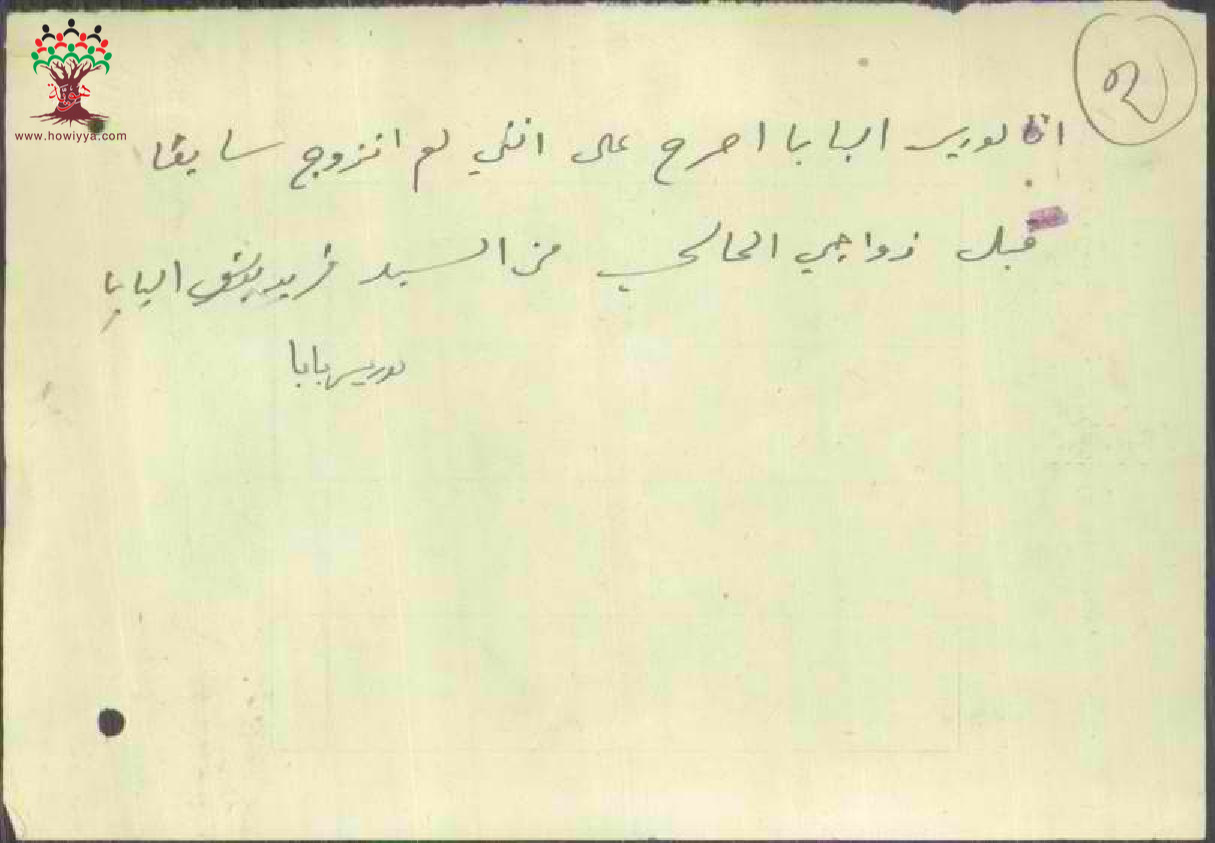 ٢
هوية
www.howiyya.com
انا لوريس البابا اصرح على انني لم اتزوج سابقا
قبل زواجي الحالي من السيد فريد البابا
لوريس بابا